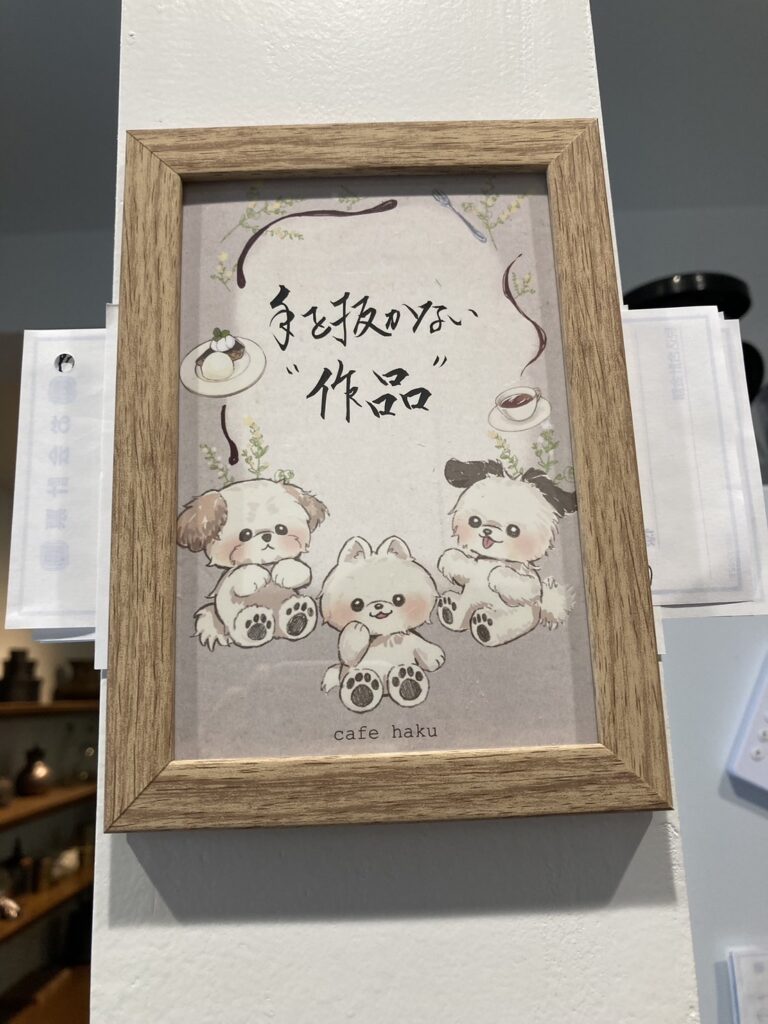 手を抜かない
"作品"
cafe haku